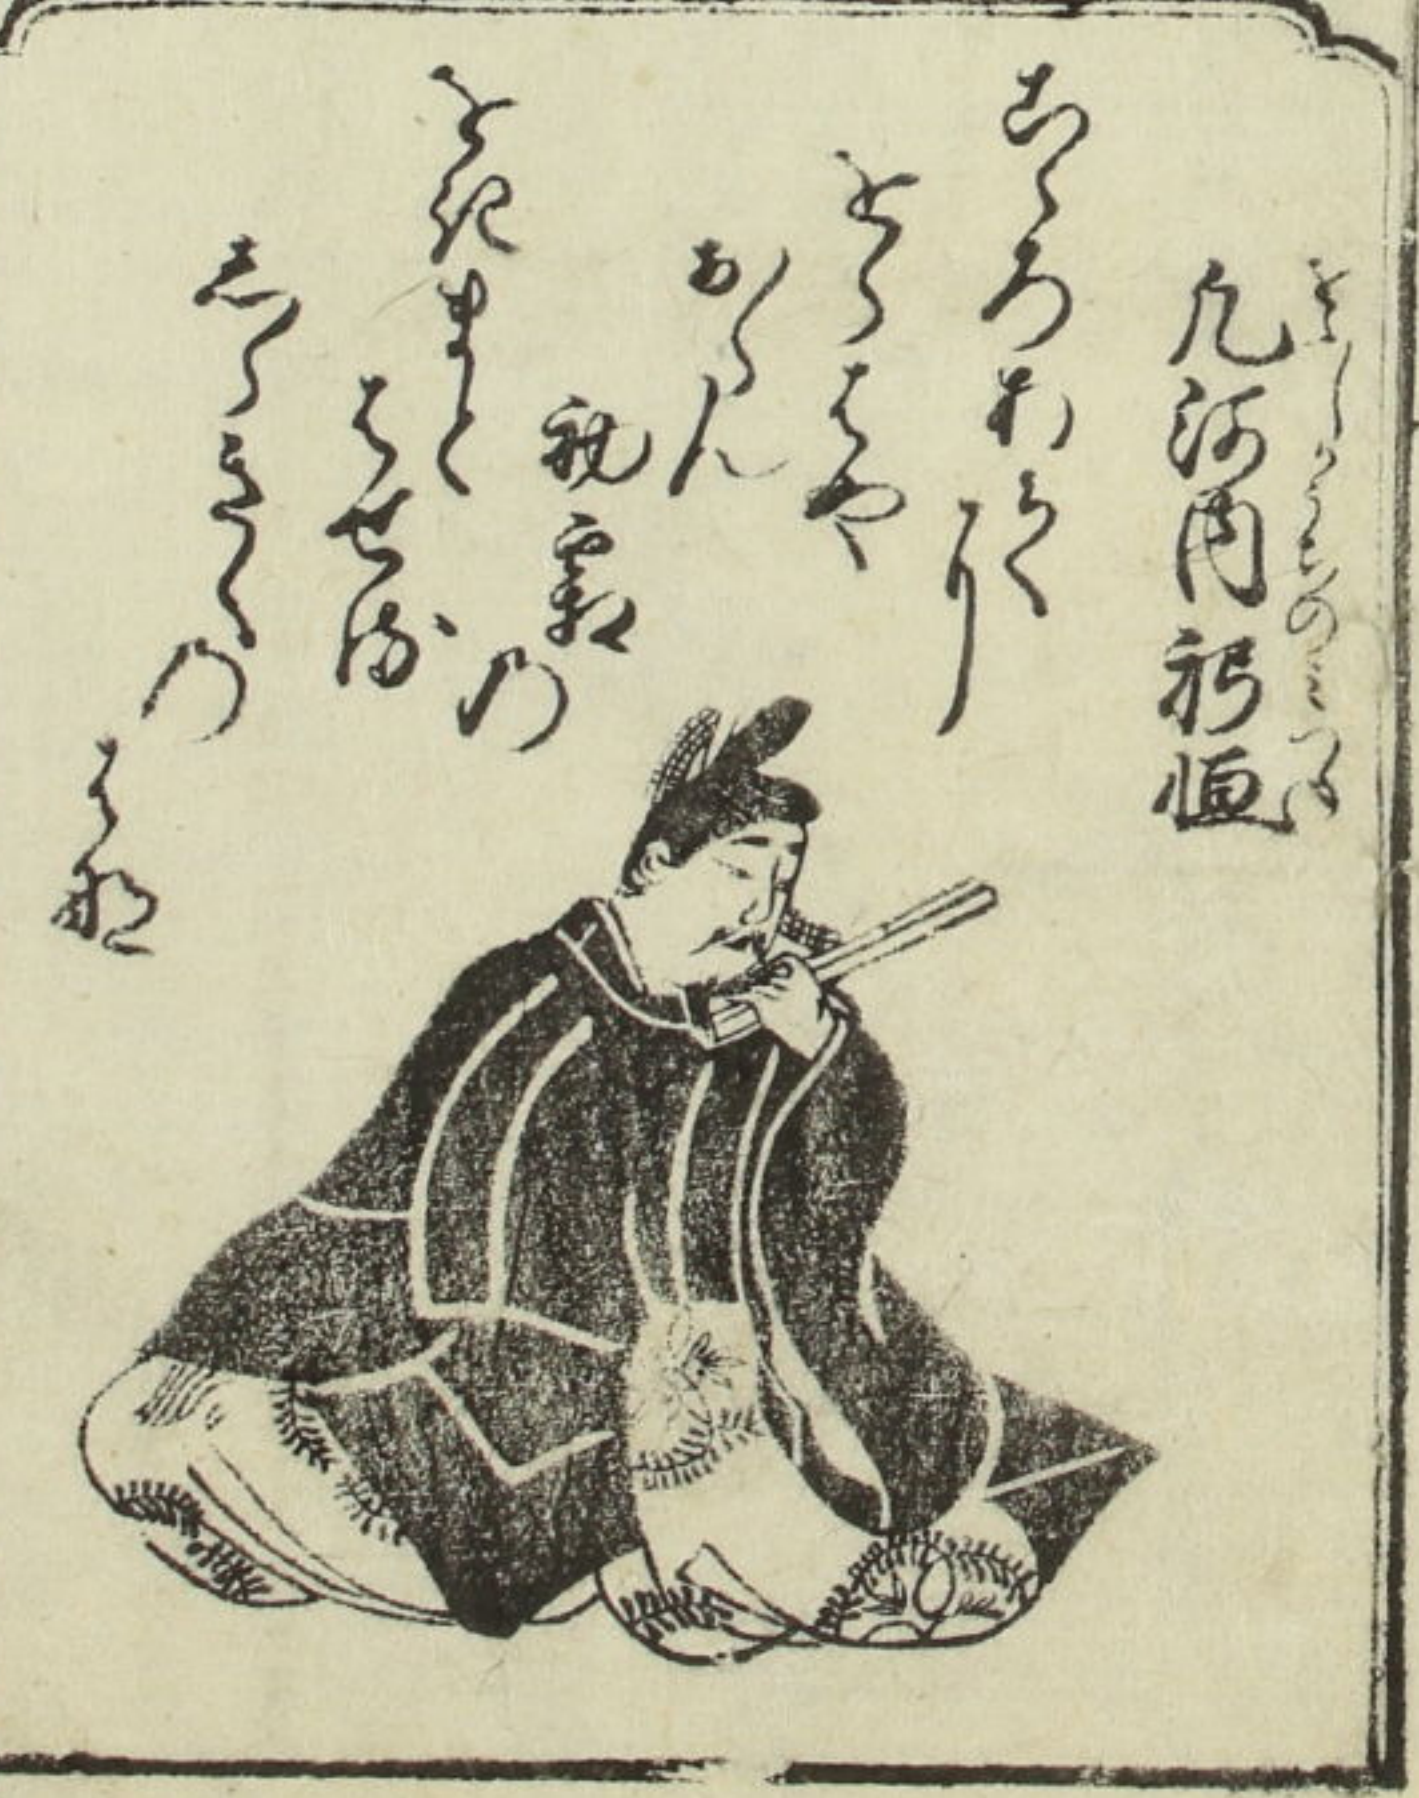 をゝしかうちのみつね
凡河内躬恒
こゝろあて
に
をらはや
おらん
初霜
の
をきまと
はせる
しらきくの
はな